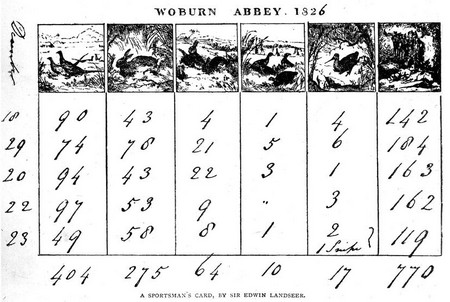 WOBURN ABBEY. 1826
18 90 43 4 1 4 142
29 74 78 21 5 6 184
20 94 43 22 3 1 163
22 97 53 9 " 3 162
23 49 58 8 1 2 119
1 Snipe }
404 275 64 10 17 770
A SPORTSMAN'S CARD, BY SIR EDWIN LANDSEER.